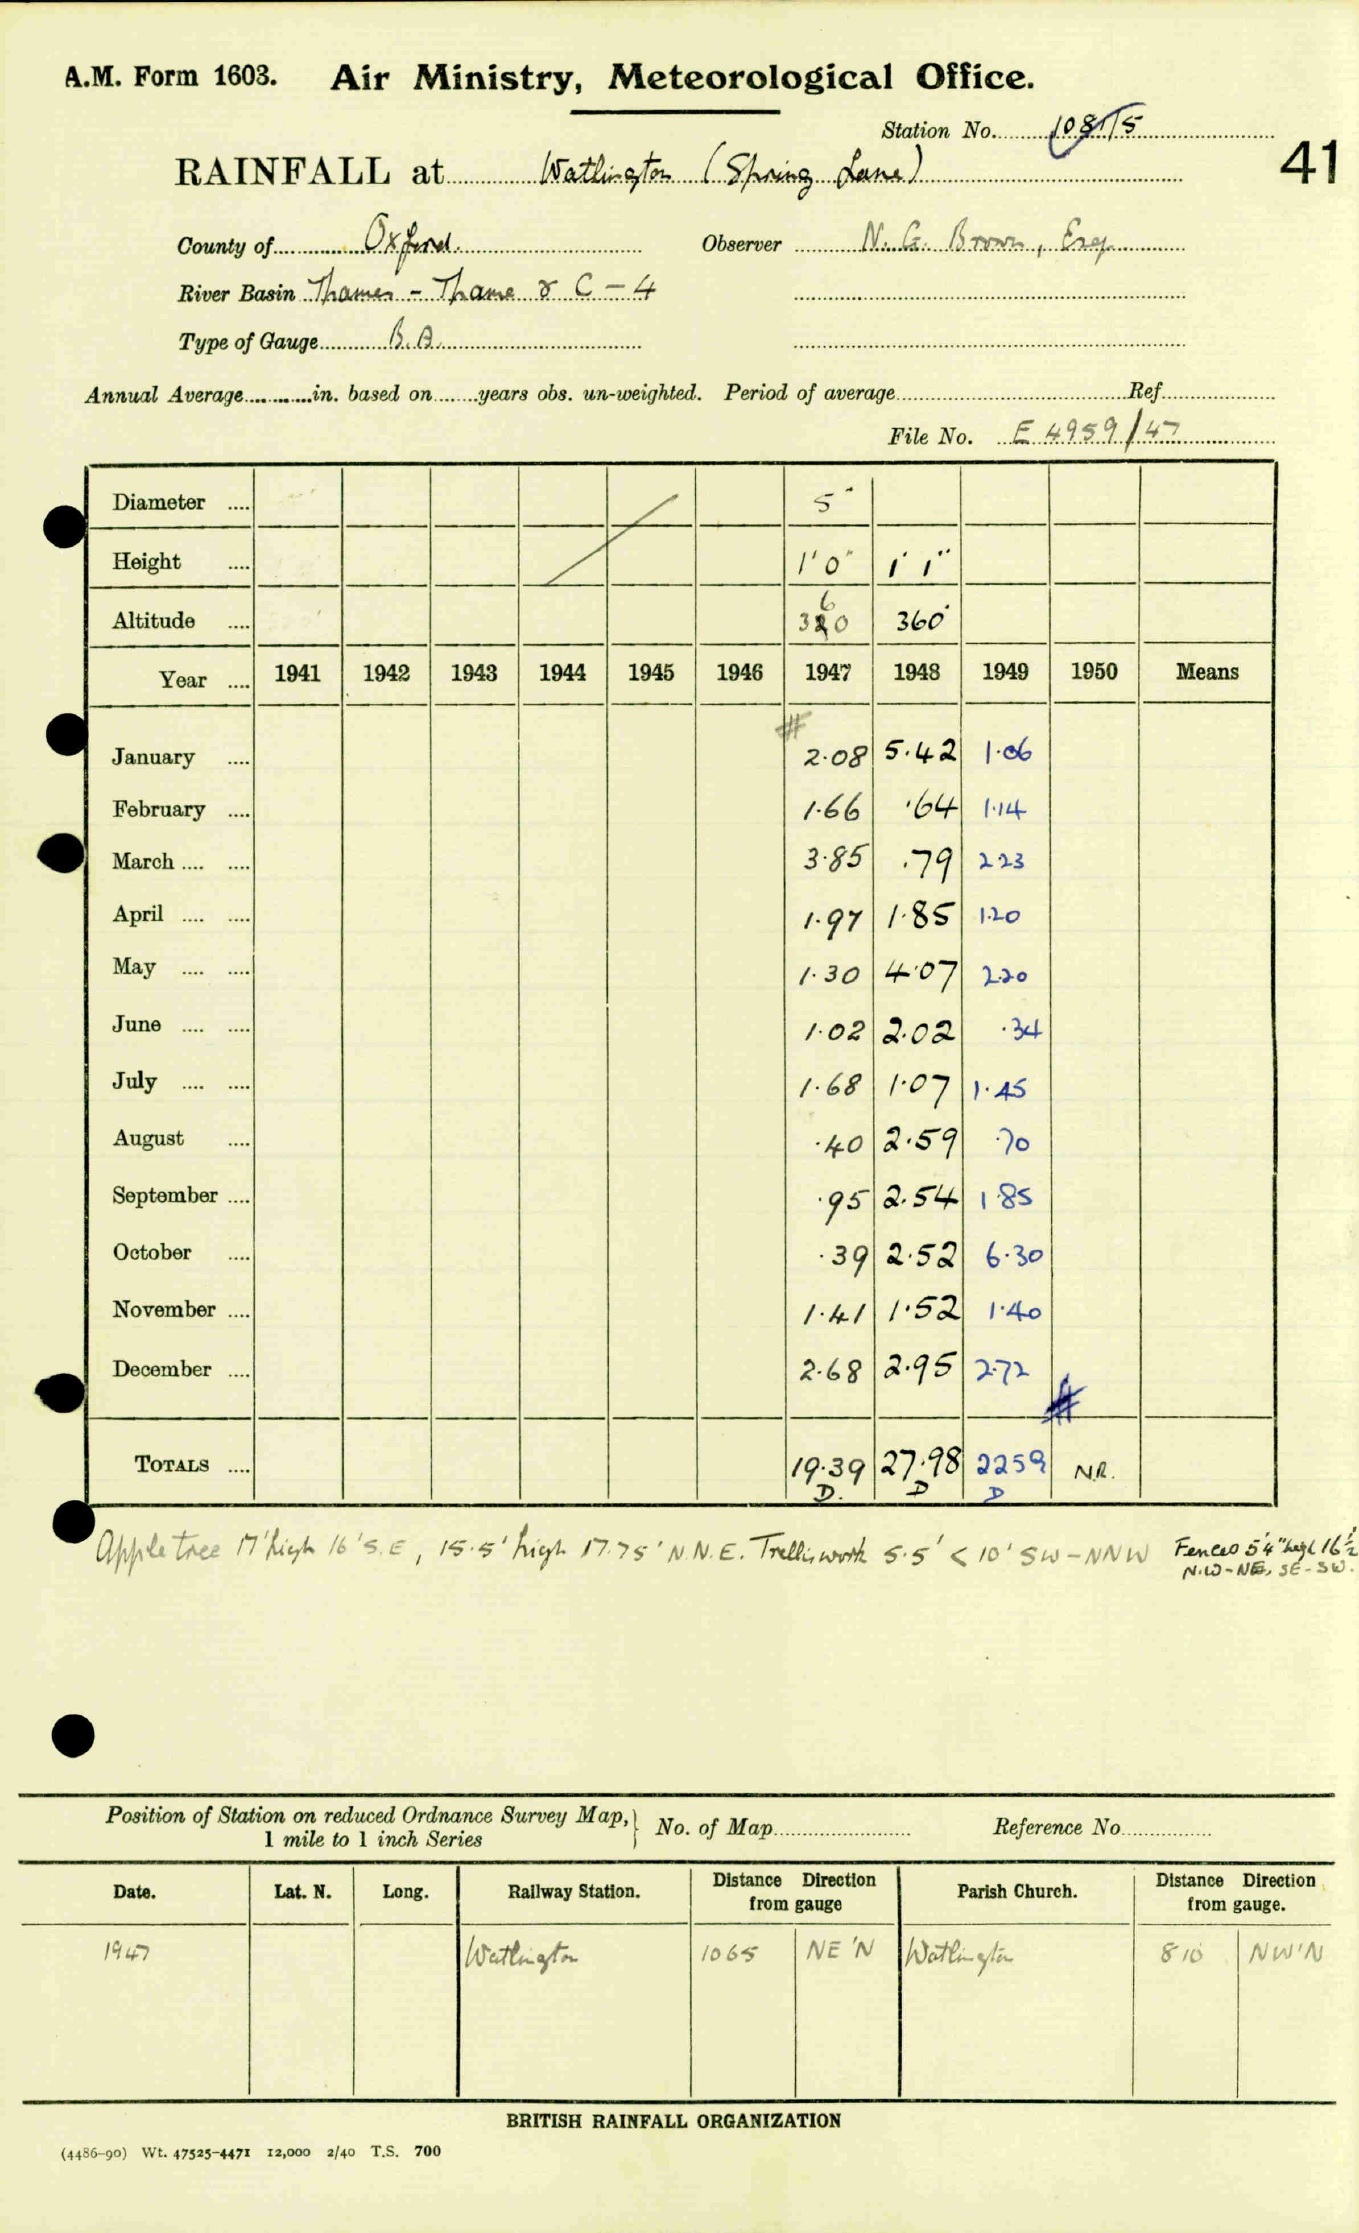 A.M. Form 1603. Air Ministry, Meteorological Office.
Station No. 1081/5
41
RAINFALL at Watlington (Spring Lane)
County of Oxford. Observer N. G. Brown, Esq
River Basin Thames - Thame & C - 4
Type of Gauge B.A.
Annual Average in. based on years obs. un-weighted. Period of average Ref.
File No. E 4959/47
Diameter 5"
Height 1' 0" 1' 1"
Altitude 3 6 0 360'
Year 1941 1942 1943 1944 1945 1946 1947 1948 1949 1950 Means
#
January 2.08 5.42 1.06
February 1.66 .64 1.14
March 3.85 .79 2.23
April 1.97 1.85 1.20
May 1.30 4.07 2.20
June 1.02 2.02 .34
July 1.68 1.07 1.45
August .40 2.59 .70
September .95 2.54 1.85
October .39 2.52 6.30
November 1.41 1.52 1.40
December 2.68 2.95 2.72
#
TOTALS 19.39 27.98 2259 N.R.
D. D D
Apple tree 17' high 16' S.E, 15.5' high 17.75' N.N.E. Trelliswork 5.5' < 10' SW-NNW Fences 5'4" high 16½'
N.W-NE, SE-SW.
Position of Station on reduced Ordnance Survey Map, 1 mile to 1 inch Series No. of Map Reference No.
Date. Lat. N. Long. Railway Station. Distance Direction from gauge Parish Church. Distance Direction from gauge.
1947 Watlington 1065 NE'N Watlington 810 NW'N
BRITISH RAINFALL ORGANIZATION
(4486-90) Wt. 47525-4471 12,000 2/40 T.S. 700